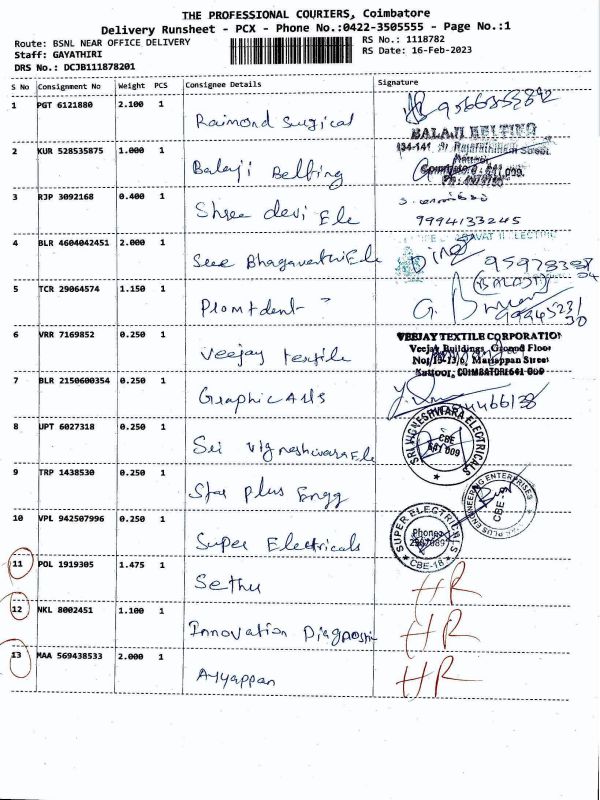 THE PROFESSIONAL COURIERS, Coimbatore
Delivery Runsheet - PCX - Phone No.:0422-3505555 - Page No.:1
Route: BSNL NEAR OFFICE DELIVERY
RS No.: 1118782
Staff: GAYATHIRI
RS Date: 16-Feb-2023
DRS No.: DCJB111878201
S No Consignment No Weight PCS Consignee Details Signature
1 PGT 6121880 2.100 1
Raimond Surgical
BALAJI BELTING
2 KUR 528535875 1.000 1
Balaji Belting
3 RJP 3092168 0.400 1
Shree devi Ele
9994133245
4 BLR 4604042451 2.000 1
Sree Bhagavathi Ele
5 TCR 29064574 1.150 1
Promtdent
(BALAJI)
6 VRR 7169852 0.250 1
Veejay textile
VEEJAY TEXTILE CORPORATION
Veejay Buildings, Ground Floor
Mariappan Street
Kattoor, COIMBATORE-641 009
7 BLR 2150600354 0.250 1
Graphic Arts
8 UPT 6027318 0.250 1
Sri Vigneshwara Ele
SRI VIGNESHWARA ELECTRICALS
CBE
641 009
9 TRP 1438530 0.250 1
Star plus Engg
PLUS ENGINEERING ENTERPRISES
CBE-9
10 VPL 942507996 0.250 1
Super Electricals
SUPER ELECTRICALS
Phone:
CBE-18
11 POL 1919305 1.475 1
Sethu
HR
12 NKL 8002451 1.100 1
Innovation Diagnostic
HR
13 MAA 569438533 2.000 1
Ayyappan
HR